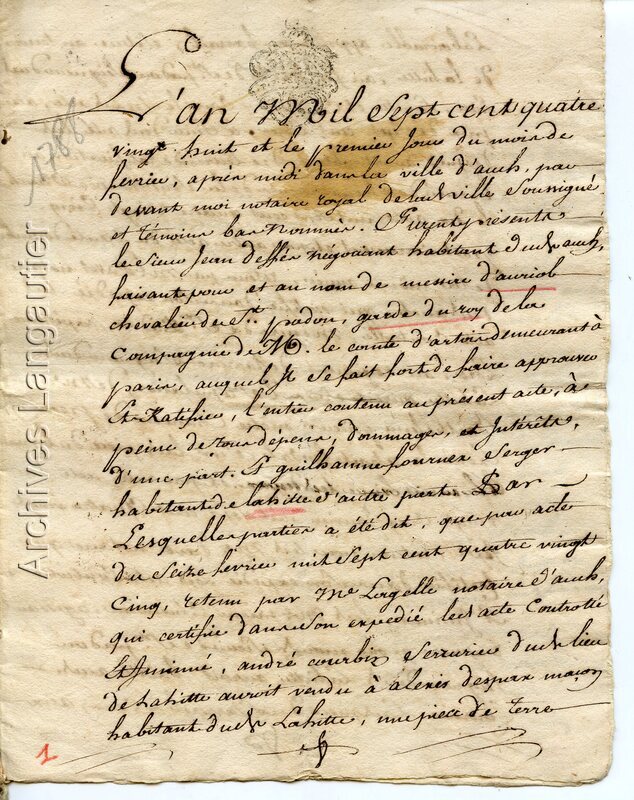 L'an Mil Sept cent quatre
vingt huit et le premier Jour du mois de
fevrier, après midi dans la ville d'auch, par
devant moi notaire royal de lad. ville Soussigné
et témoins bas nommés. Furent présents
le Sieur Jean deffés négociant habitant dud. auch,
faisant pour et au nom de messire d'auriol
chevalier de St. padou, garde du roy de la
Compagnie de M. le comte d'artois demeurant à
paris, auquel Il se fait fort de faire approuver
Et Ratifier, l'entier contenu au présent acte, à
peine de tous dépens, dommages, et Intérêts,
d'une part. Et guilhaume fournex Serger
habitant de lahitte d'autre part. Par
Lesquelles parties a été dit, que par acte
du Seize fevrier mil Sept cent quatre vingt
Cinq, retenu par Me Lagelle notaire d'auch,
qui certifie dans son expedié led. acte Controllé
Et Insinué, andré courbix Serrurier dud. lieu
de Lahitte auroit vendu à alexis despax maçon
habitant dud. Lahitte, une piece de terre
1788
Archives Langautier
1